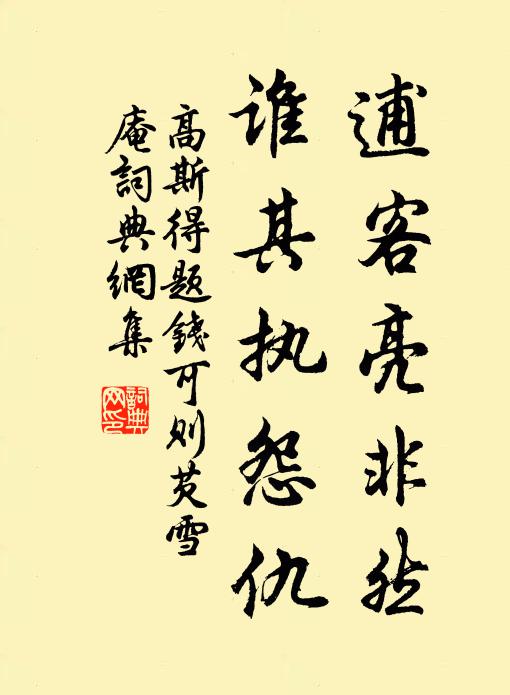 逋客亮非然
谁其执怨仇
高斯得题錢可则芡雪
庵詞典網集
詞典
网印